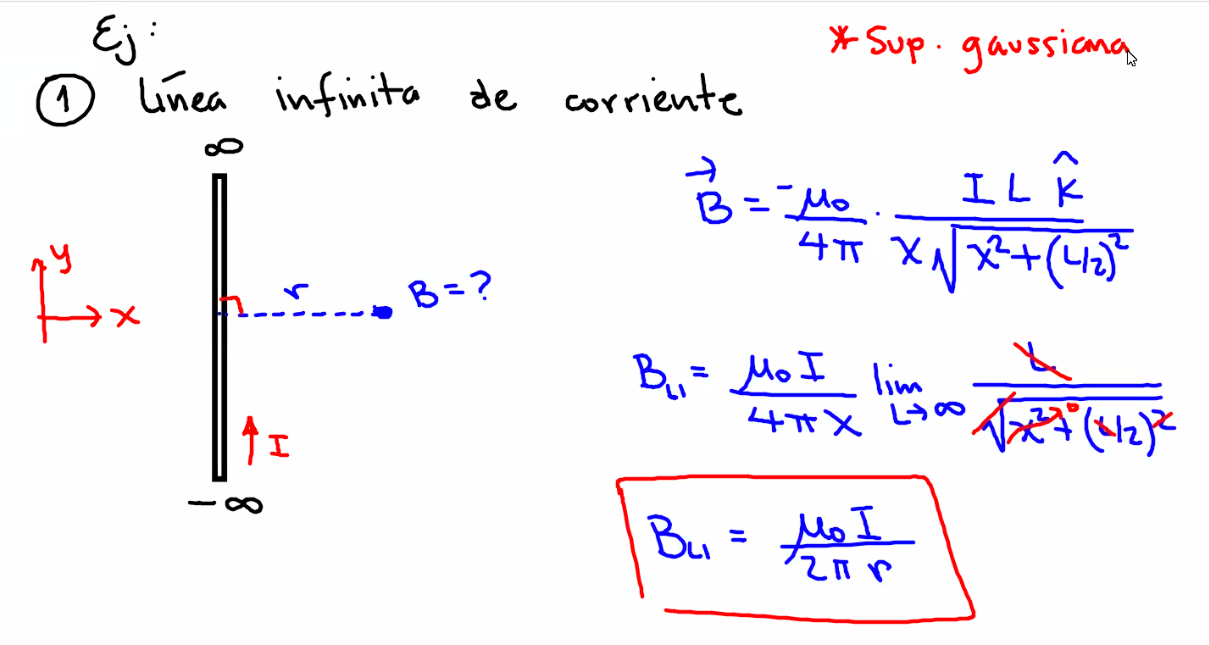 Ej:
* Sup. gaussiana
① Línea infinita de corriente
∞
y
x
r
B = ?
I
- ∞
B⃗ = -μ₀/4π · I L k̂ / x√(x² + (L/2)²)
B_LI = μ₀I/4πx lim L→∞ L/√(x² + (L/2)²) 0
B_LI = μ₀I/2πr